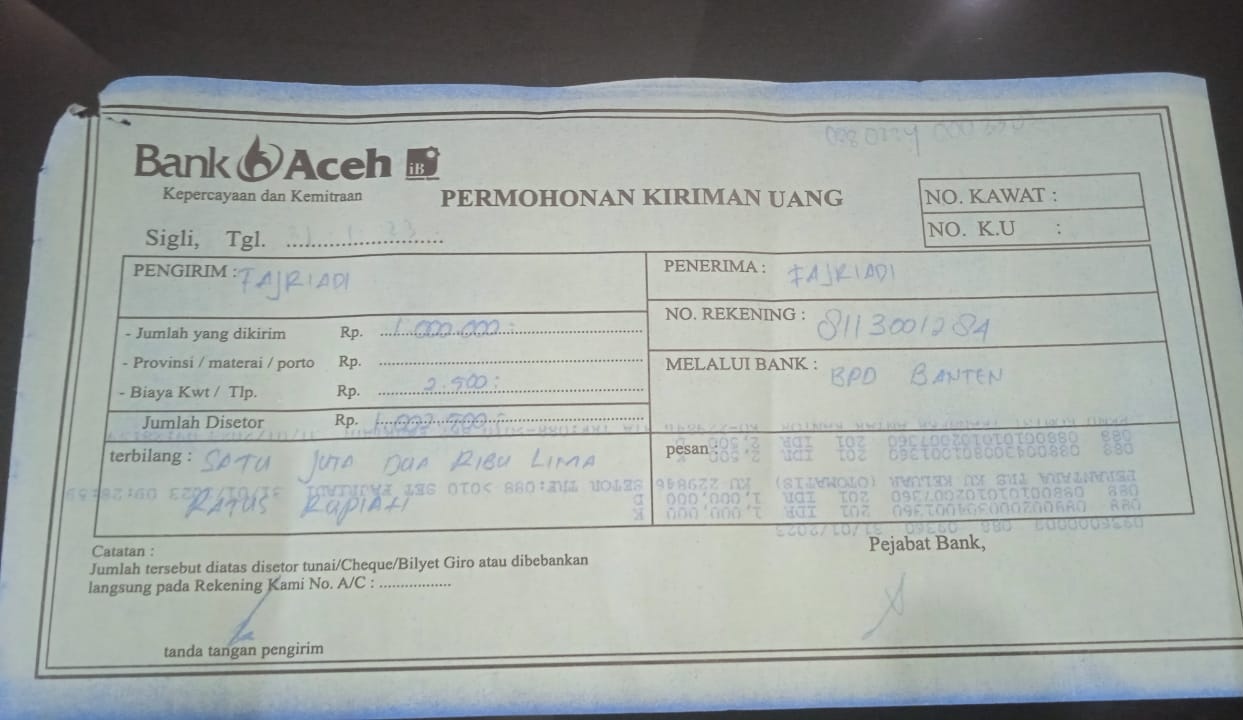 Bank Aceh iB
Kepercayaan dan Kemitraan
PERMOHONAN KIRIMAN UANG
NO. KAWAT :
NO. K.U :
Sigli, Tgl. 31.1.23
PENGIRIM : FAJRIADI
PENERIMA : FAJRIADI
- Jumlah yang dikirim Rp. 1.000.000
NO. REKENING : 8113001284
- Provinsi / materai / porto Rp.
MELALUI BANK : BPD BANTEN
- Biaya Kwt / Tlp. Rp. 2.500
Jumlah Disetor Rp. 1.002.500
terbilang : SATU JUTA DUA RIBU LIMA
RATUS RUPIAH
pesan :
088 0880043008001360 201 IDR 2,500
088 088001010102007360 201 IDR 2,500
31/01/2023 09:28:59
1,000,000
1,000,000
31/01/2023
Catatan :
Jumlah tersebut diatas disetor tunai/Cheque/Bilyet Giro atau dibebankan
langsung pada Rekening Kami No. A/C : ..................
Pejabat Bank,
tanda tangan pengirim